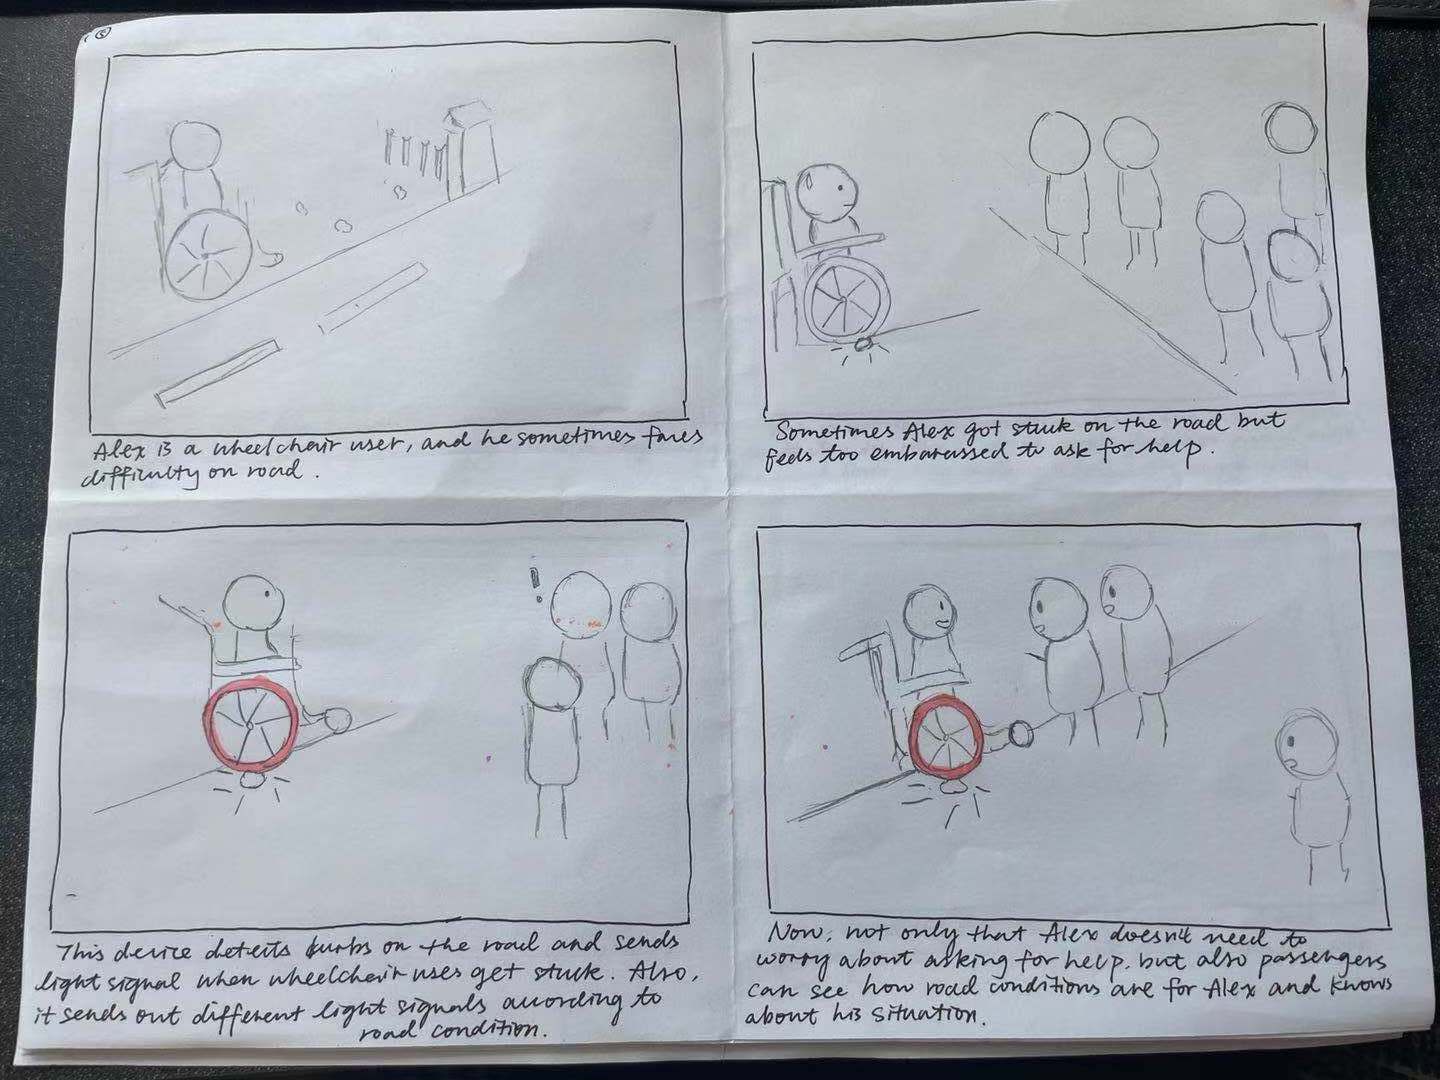 (3)
Alex is a wheelchair user, and he sometimes faces
difficulty on road.
Sometimes Alex got stuck on the road but
feels too embarassed to ask for help.
!
This device detects kurbs on the road and sends
light signal when wheelchair uses get stuck. Also,
it sends out different light signals auording to
road condition.
Now, not only that Alex doesn't need to
worry about asking for help, but also passengers
can see how road conditions are for Alex and knows
about his situation.